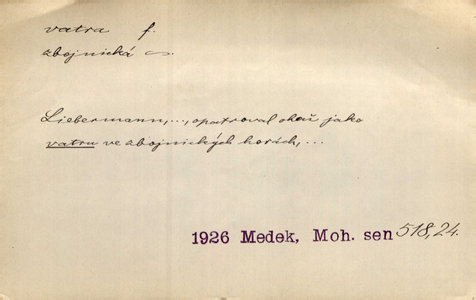 vatra f.
zbojnická ~.
Liebermann,..., opatroval oheň jako
vatru ve zbojnických horách,...
1926 Medek, Moh. sen 518,24.